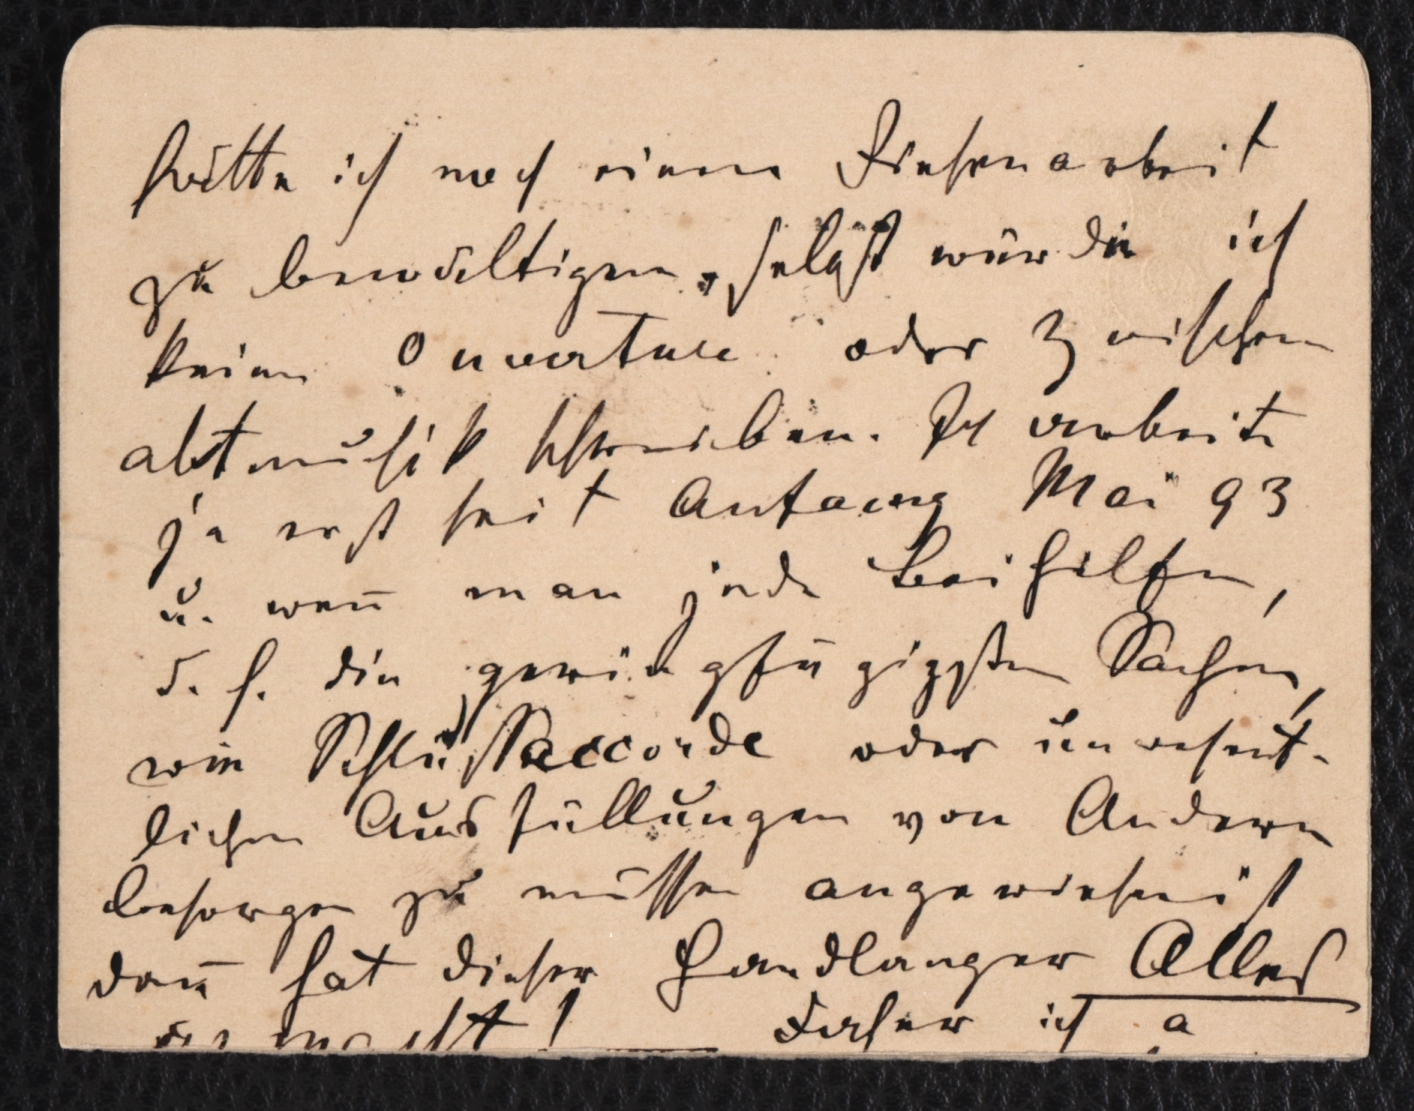 hätte ich noch eine Riesenarbeit
zu bewältigen, selbst würde ich
keine Ouverture oder Zwischen
aktmusik schreiben. Ich arbeite
ja erst seit Anfang Mai 93
u. wen̄ man jede Beihilfe,
d. h. die geringfügigsten Sachen,
wie Schlußaccorde oder unwesent-
lichen Ausfüllungen von Andern
besorgen zu müssen angewiesen ist
dan̄ hat dieser Handlanger Alles
gemacht! Daher ich a